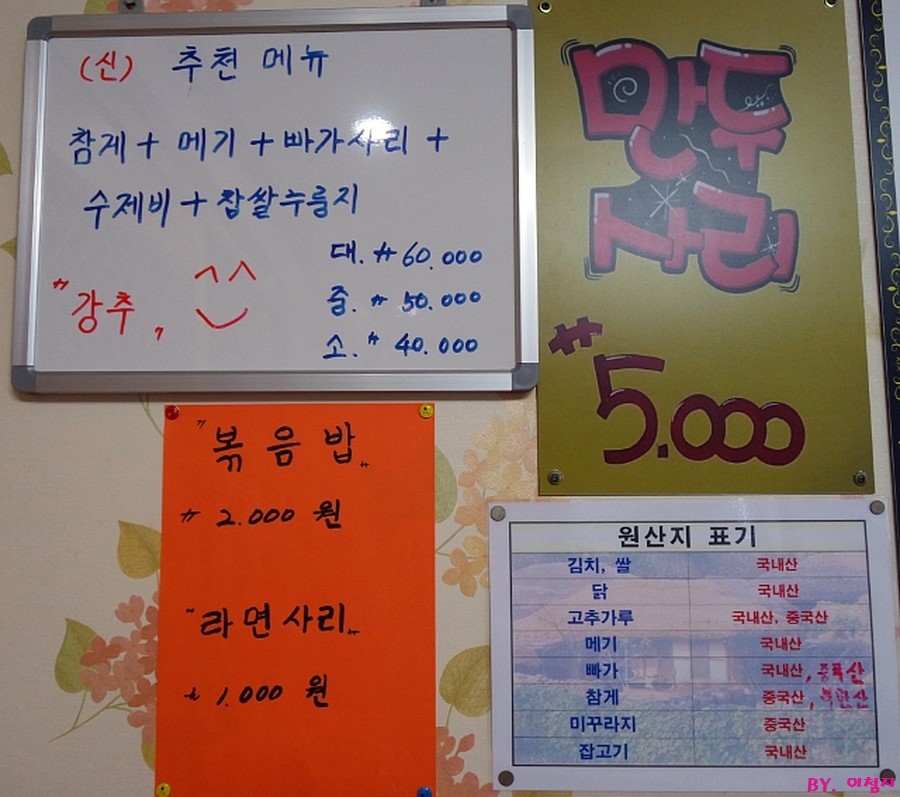 (신) 추천 메뉴
참게 + 메기 + 빠가사리 +
수제비 + 찹쌀누룽지
대. ₩ 60.000
중. ₩ 50.000
소. ₩ 40.000
"강추"
만두
사리
₩ 5.000
"볶음밥"
₩ 2.000 원
"라면사리"
₩ 1.000 원
원산지 표기
김치, 쌀 국내산
닭 국내산
고추가루 국내산, 중국산
메기 국내산
빠가 국내산, 중국산
참게 중국산, 북한산
미꾸라지 중국산
잡고기 국내산
BY. 이청지